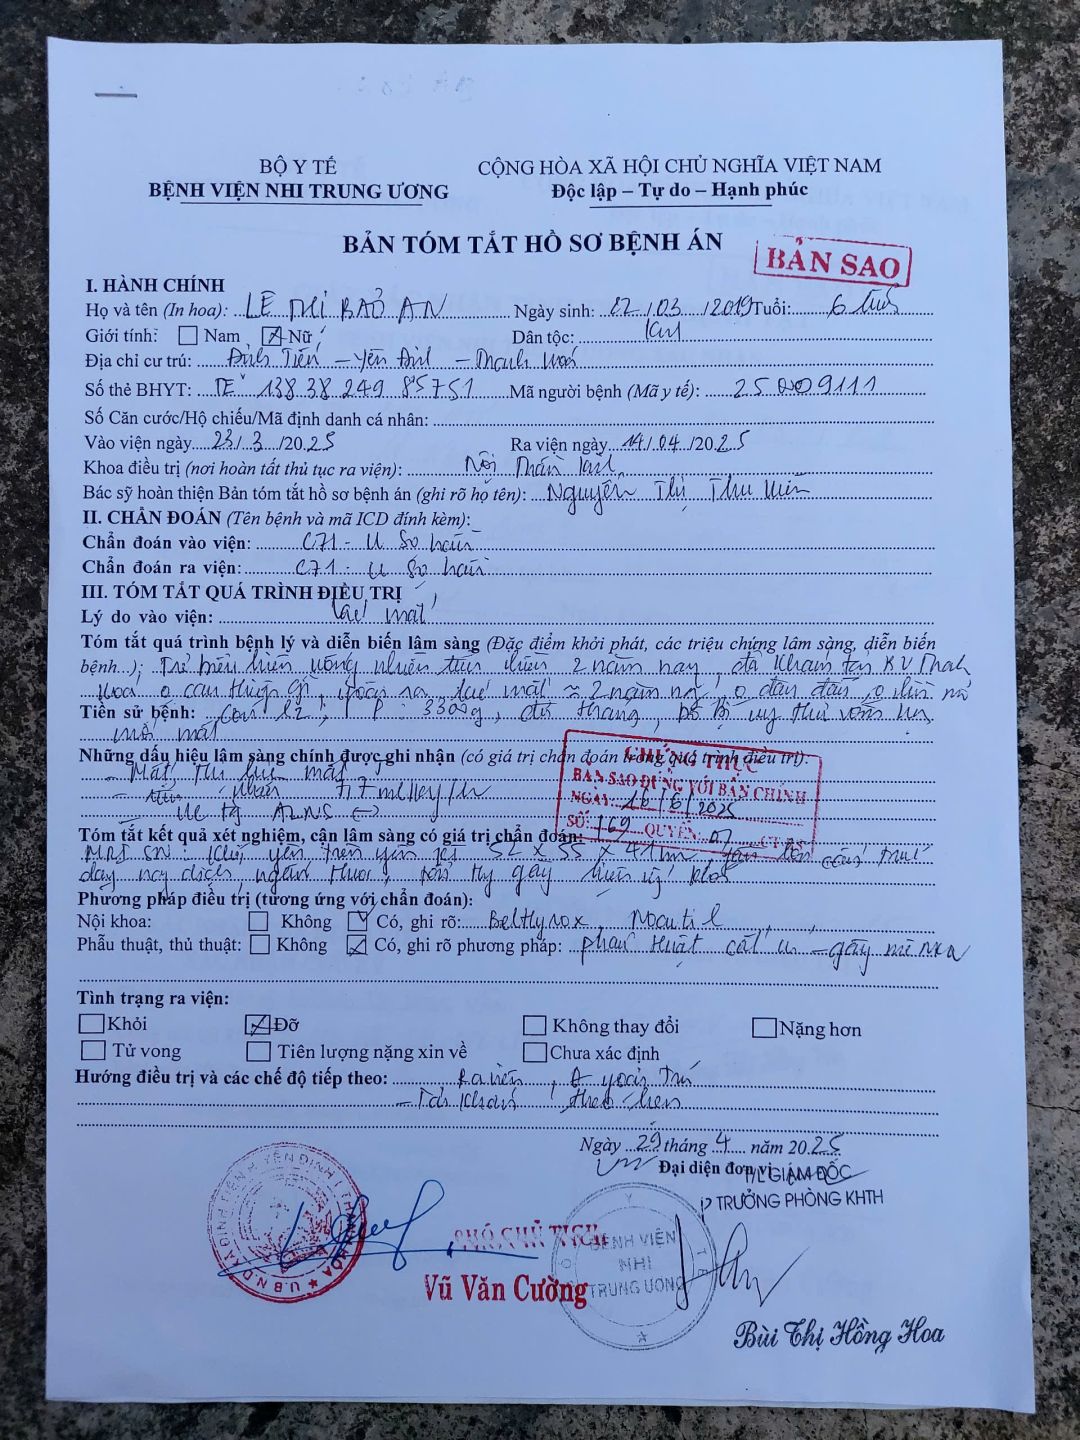 BỘ Y TẾ
BỆNH VIỆN NHI TRUNG ƯƠNG
CỘNG HÒA XÃ HỘI CHỦ NGHĨA VIỆT NAM
Độc lập – Tự do – Hạnh phúc
BẢN TÓM TẮT HỒ SƠ BỆNH ÁN
BẢN SAO
I. HÀNH CHÍNH
Họ và tên (In hoa): LÊ THỊ BẢO AN Ngày sinh: 22/03/2019 Tuổi: 6 tuổi
Giới tính: Nam Nữ Dân tộc: Kinh
Địa chỉ cư trú: Định Tiến – Yên Định – Thanh Hoá
Số thẻ BHYT: TE 138 38 249 85751 Mã người bệnh (Mã y tế): 25.0009111
Số Căn cước/Hộ chiếu/Mã định danh cá nhân:
Vào viện ngày 23/3/2025 Ra viện ngày 14/04/2025
Khoa điều trị (nơi hoàn tất thủ tục ra viện): Nội Thần kinh
Bác sỹ hoàn thiện Bản tóm tắt hồ sơ bệnh án (ghi rõ họ tên): Nguyễn Thị Thu Hiền
II. CHẨN ĐOÁN (Tên bệnh và mã ICD đính kèm):
Chẩn đoán vào viện: C71 - U sọ hầu
Chẩn đoán ra viện: C71 - U sọ hầu
III. TÓM TẮT QUÁ TRÌNH ĐIỀU TRỊ
Lý do vào viện: lác mắt
Tóm tắt quá trình bệnh lý và diễn biến lâm sàng (Đặc điểm khởi phát, các triệu chứng lâm sàng, diễn biến
bệnh...): Trẻ biểu hiện uống nhiều tiểu nhiều 2 năm nay, đã khám tại BV Thanh
Hoá 0 can thiệp gì, ngoài ra lác mắt ≈ 2 năm nay, 0 đau đầu, 0
Tiền sử bệnh: Con l2, P: 3300g, đủ tháng, bố bị
mổ mắt
Những dấu hiệu lâm sàng chính được ghi nhận (có giá trị chẩn đoán trong quá trình điều trị):
- Mắt lác mắt
- tiểu nhiều 7,7 ml/kg/h
ALNS
CHỨNG THỰC
BẢN SAO ĐÚNG VỚI BẢN CHÍNH
NGÀY: 16/6/2025
SỐ: 169 QUYỂN: 01 CT-BS
Tóm tắt kết quả xét nghiệm, cận lâm sàng có giá trị chẩn đoán:
MRI SN: Khối yên, trên yên kt 52 x 55 x 41 mm cấu trúc
dạng dịch, ngấm thuốc, gây
Phương pháp điều trị (tương ứng với chẩn đoán):
Nội khoa: Không Có, ghi rõ: Belthyrox, Nocutil
Phẫu thuật, thủ thuật: Không Có, ghi rõ phương pháp: phẫu thuật cắt u – gây mê NKQ
Tình trạng ra viện:
Khỏi Đỡ Không thay đổi Nặng hơn
Tử vong Tiên lượng nặng xin về Chưa xác định
Hướng điều trị và các chế độ tiếp theo: Ra viện, ngoại trú
- Tái khám theo hẹn
Ngày 29 tháng 4 năm 2025
Đại diện đơn vị
T/L GIÁM ĐỐC
P TRƯỞNG PHÒNG KHTH
U.B.N.D XÃ ĐỊNH TIẾN H.YÊN ĐỊNH T.THANH HÓA
PHÓ CHỦ TỊCH
Vũ Văn Cường
BỘ Y TẾ
BỆNH VIỆN
NHI
TRUNG ƯƠNG
Bùi Thị Hồng Hoa